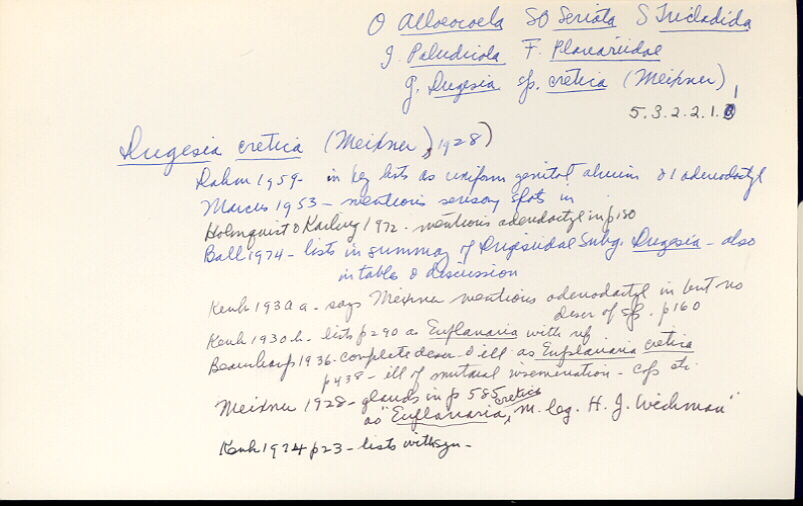 O Alloeocoela SO Seriata S Tricladida
I. Paludicola F. Planariidae
G. Dugesia sp. cretica (Meixner)
5.3.2.2.1.
Dugesia cretica (Meixner, 1928)
Dahm 1959- in key lists as uniform genital atrium & 1 adenodactyl
Marcus 1953 - mentions sensory spots in
Holmquist & Karling 1972 - mentions adenodactyl in p 150
Ball 1974 - lists in summary of Dugesiidae Subg. Dugesia - also
in table & discussion
Kenk 1930 a - says Meixner mentions adenodactyl in but no
descr of sp. p160
Kenk 1930 b - lists p290 as Euplanaria with
Beauchamp 1936 - complete descr & ill as Euplanaria cretica
p438 - ill of mutual insemination - cops etc.
Meixner 1928 - glands in p 585
as "Euplanaria cretica, m. leg. H. J. Wichman"
Kenk 1974 p23 - lists with syn -